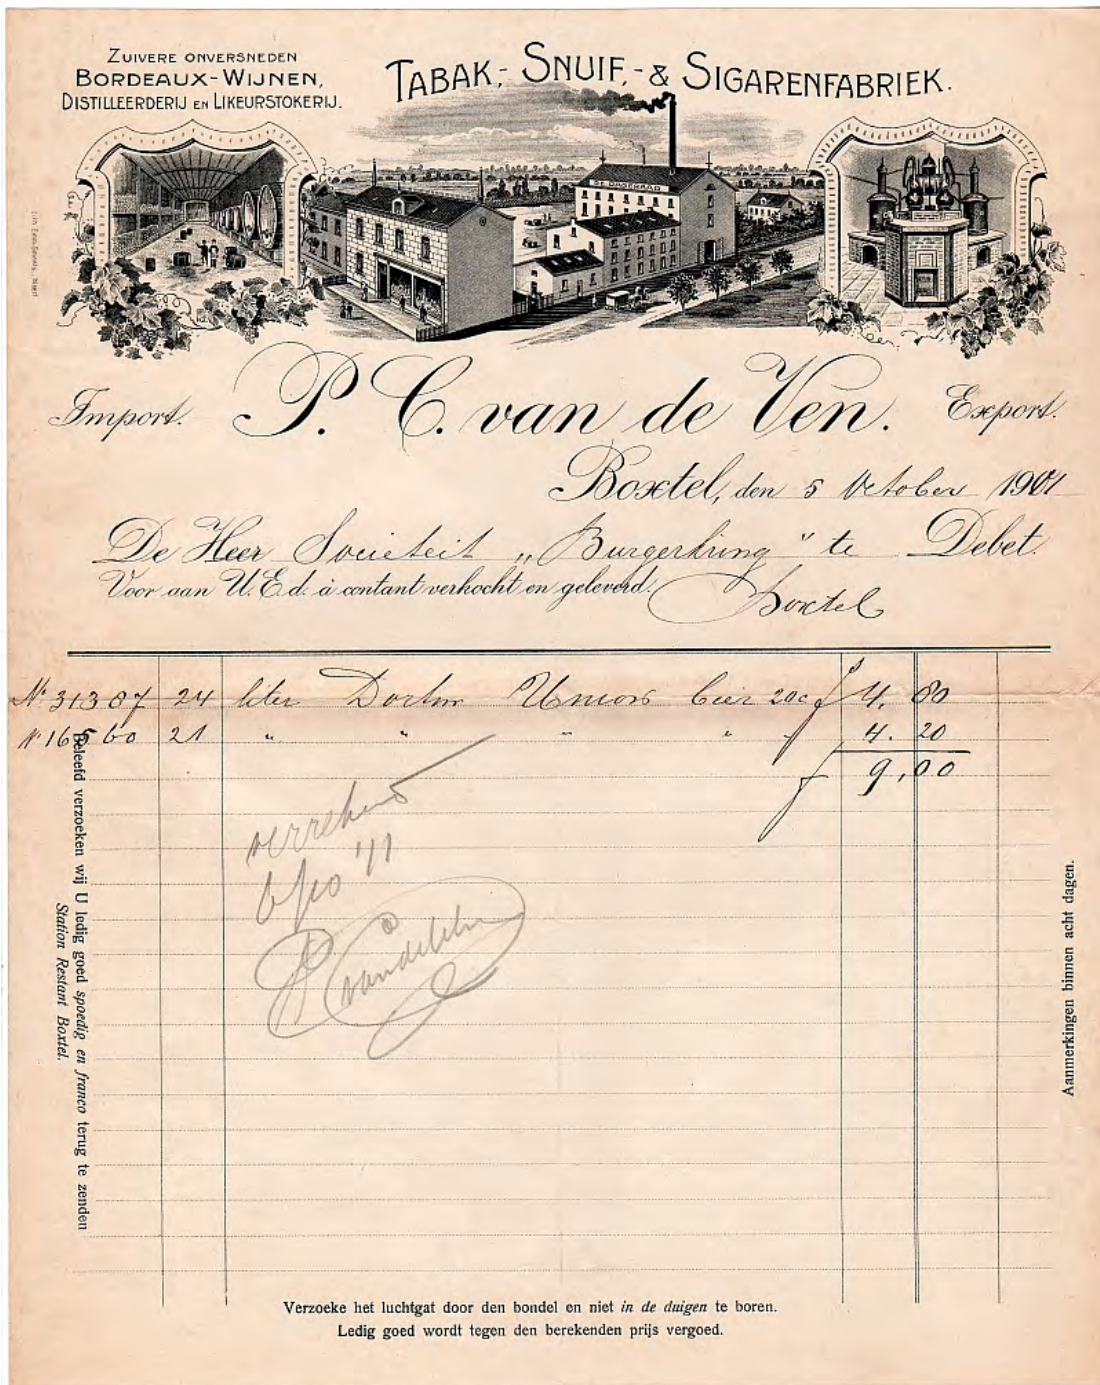 ZUIVERE ONVERSNEDEN
BORDEAUX-WIJNEN,
DISTILLEERDERIJ EN LIKEURSTOKERIJ.
TABAK,- SNUIF,- & SIGARENFABRIEK.
Import. P. C. van de Ven. Export.
Boxtel, den 5 October 1901
De Heer Societeit „Burgerkring" te Debet.
Voor aan U.Ed. à contant verkocht en geleverd. Boxtel
No 31387 24 liter Dortm Union bier 20c f 4.80
No 16560 21 " " " " " 4.20
f 9,00
verrekend
Beleefd verzoeken wij U ledig goed spoedig en franco terug te zenden
Station Restant Boxtel.
Aanmerkingen binnen acht dagen.
Verzoeke het luchtgat door den bondel en niet in de duigen te boren.
Ledig goed wordt tegen den berekenden prijs vergoed.